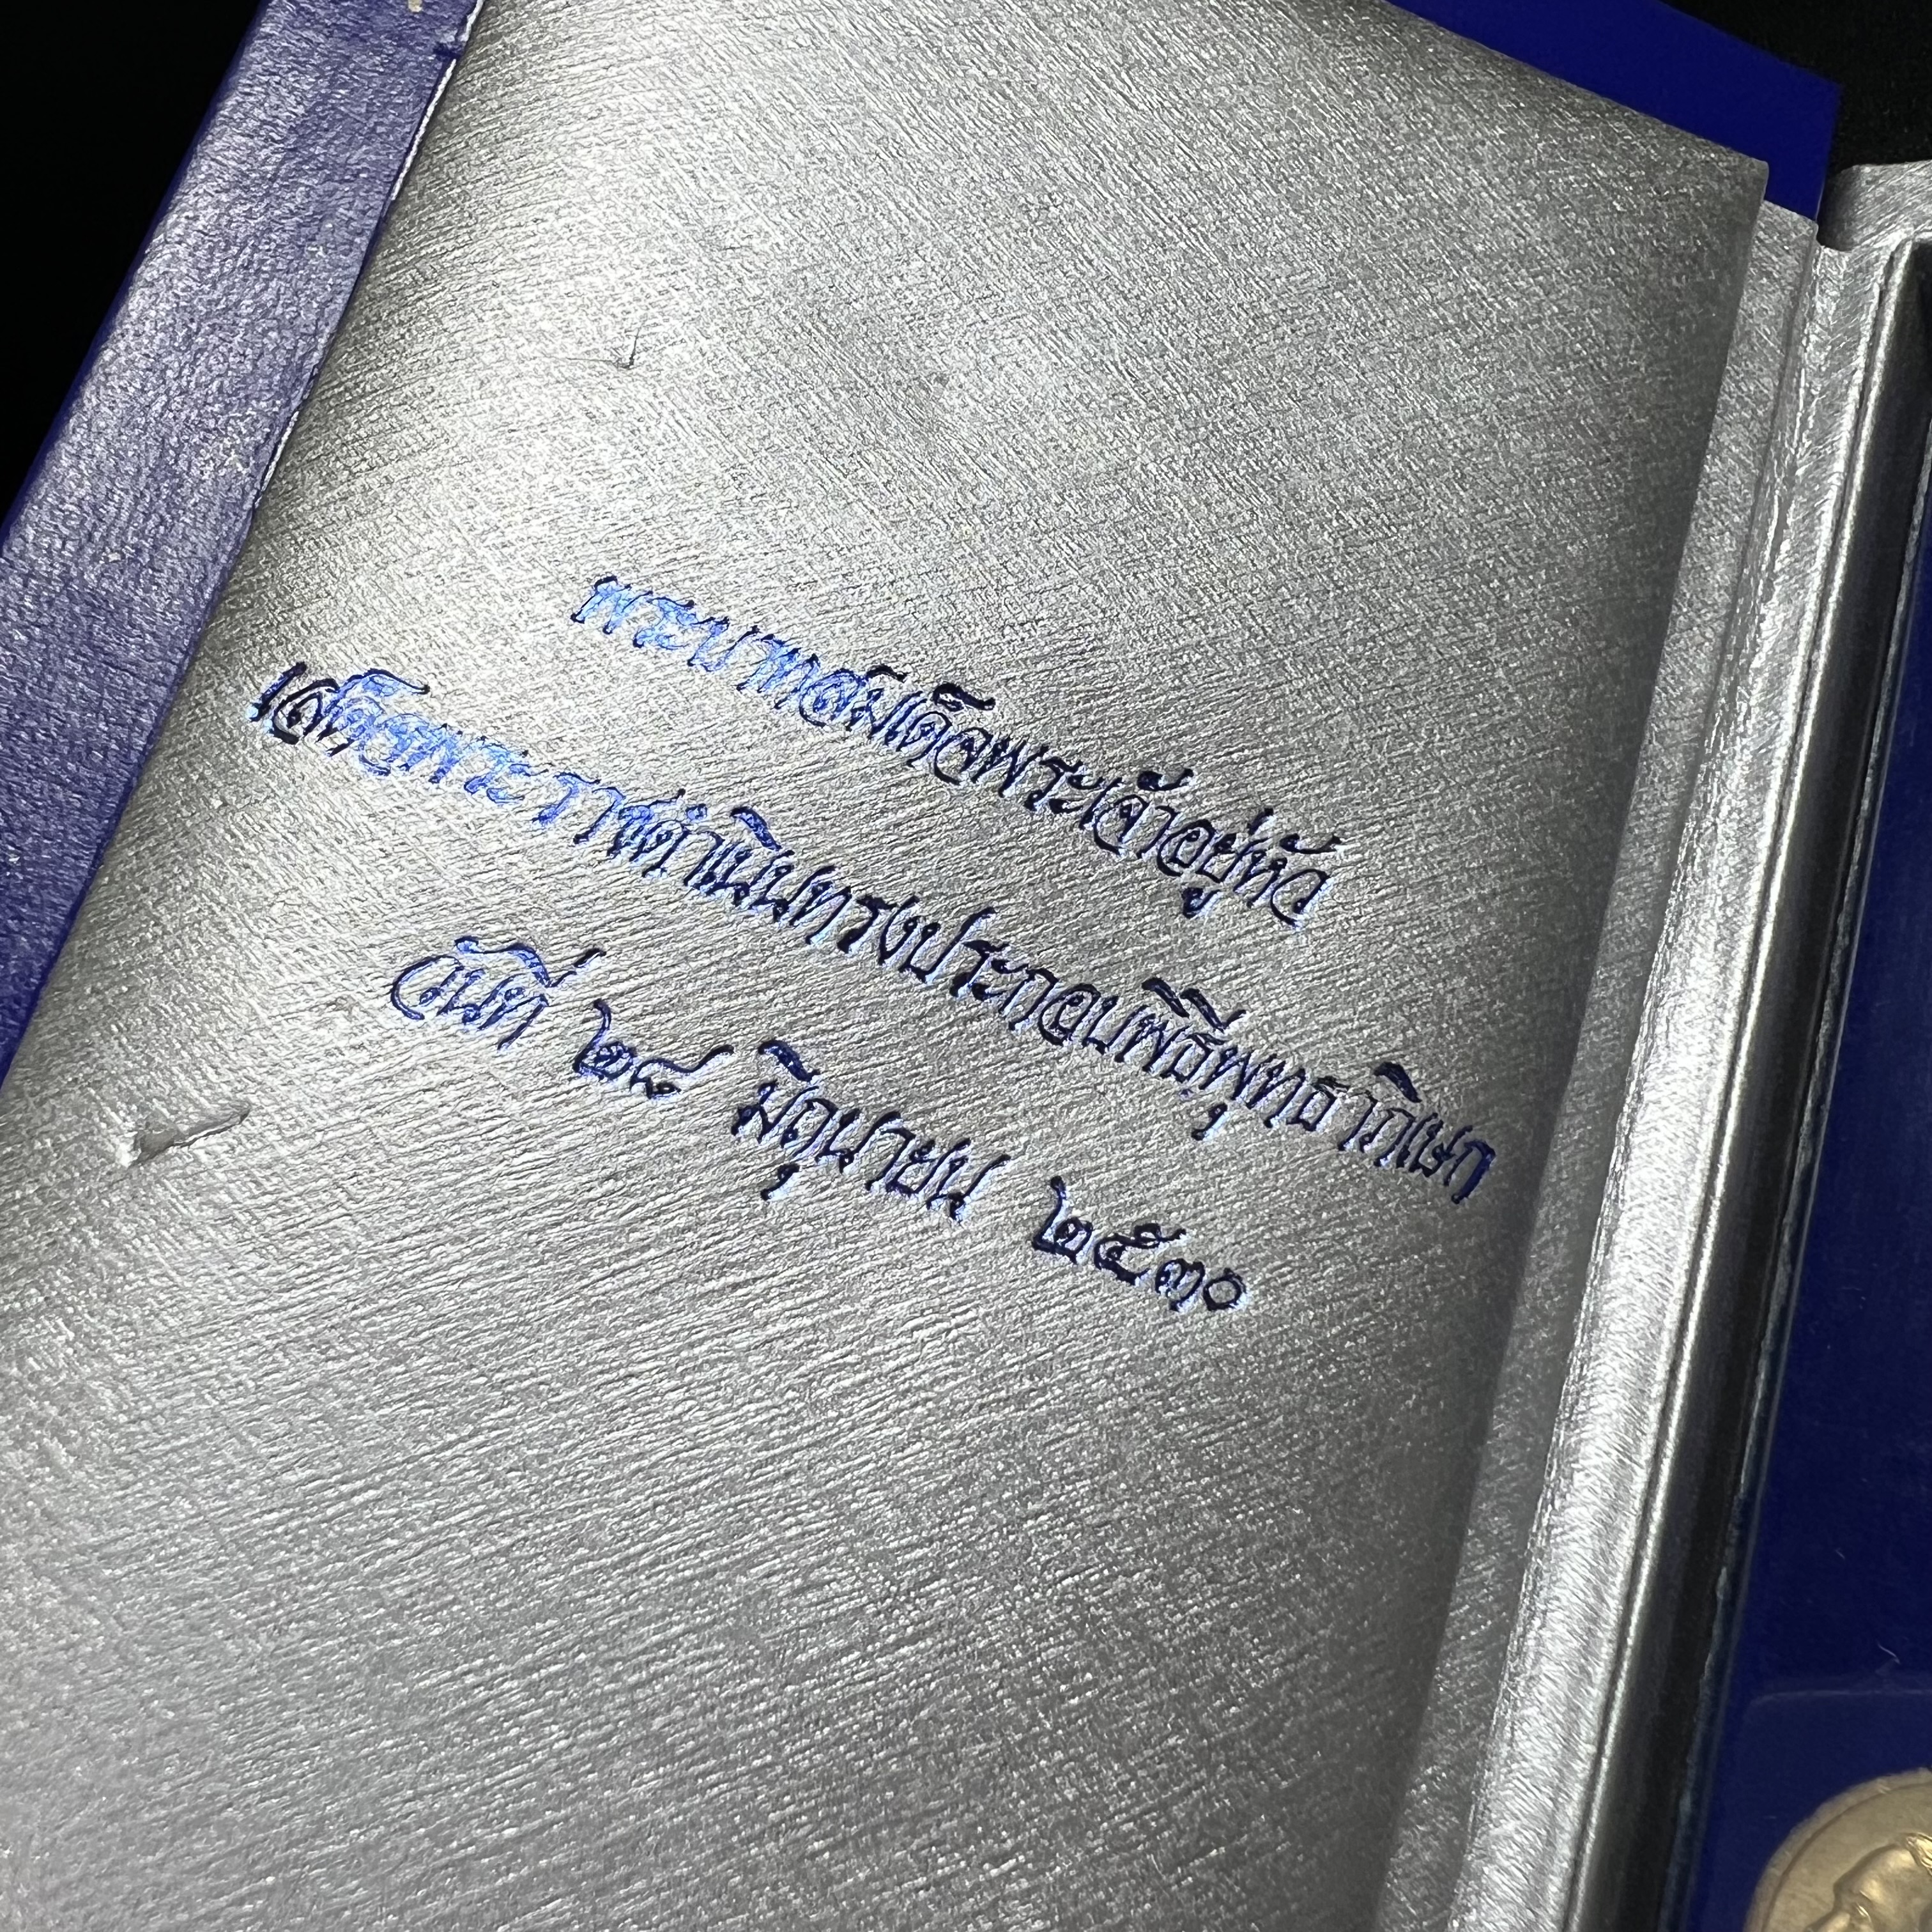 พระบาทสมเด็จพระเจ้าอยู่หัว
เสด็จพระราชดำเนินทรงประกอบพิธีพุทธาภิเษก
วันที่ ๒๘ มิถุนายน ๒๕๓๐